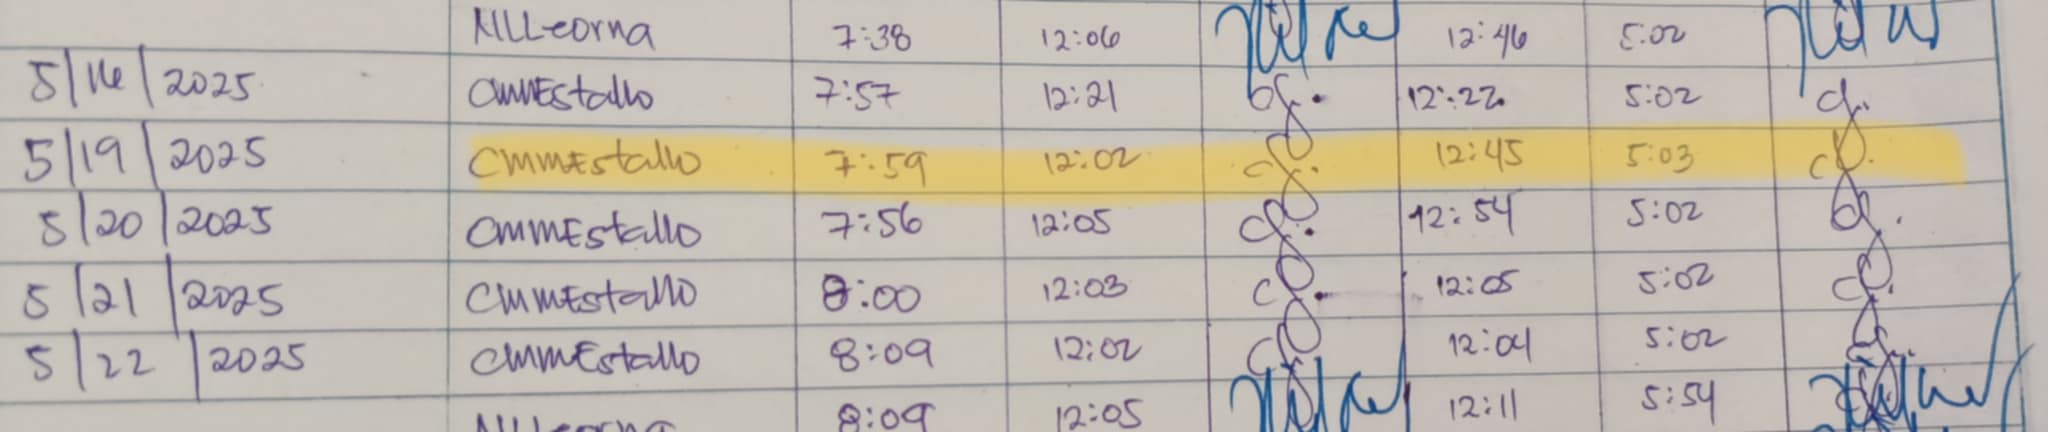 NLLeorna 7:38 12:06 12:46 5:02
5/16/2025 CMMEstallo 7:57 12:21 12:22 5:02
5/19/2025 CMMEstallo 7:59 12:02 12:45 5:03
5/20/2025 CMMEstallo 7:56 12:05 12:54 5:02
5/21/2025 CMMEstallo 8:00 12:03 12:05 5:02
5/22/2025 CMMEstallo 8:09 12:02 12:04 5:02
NLLeorna 8:09 12:05 12:11 5:54